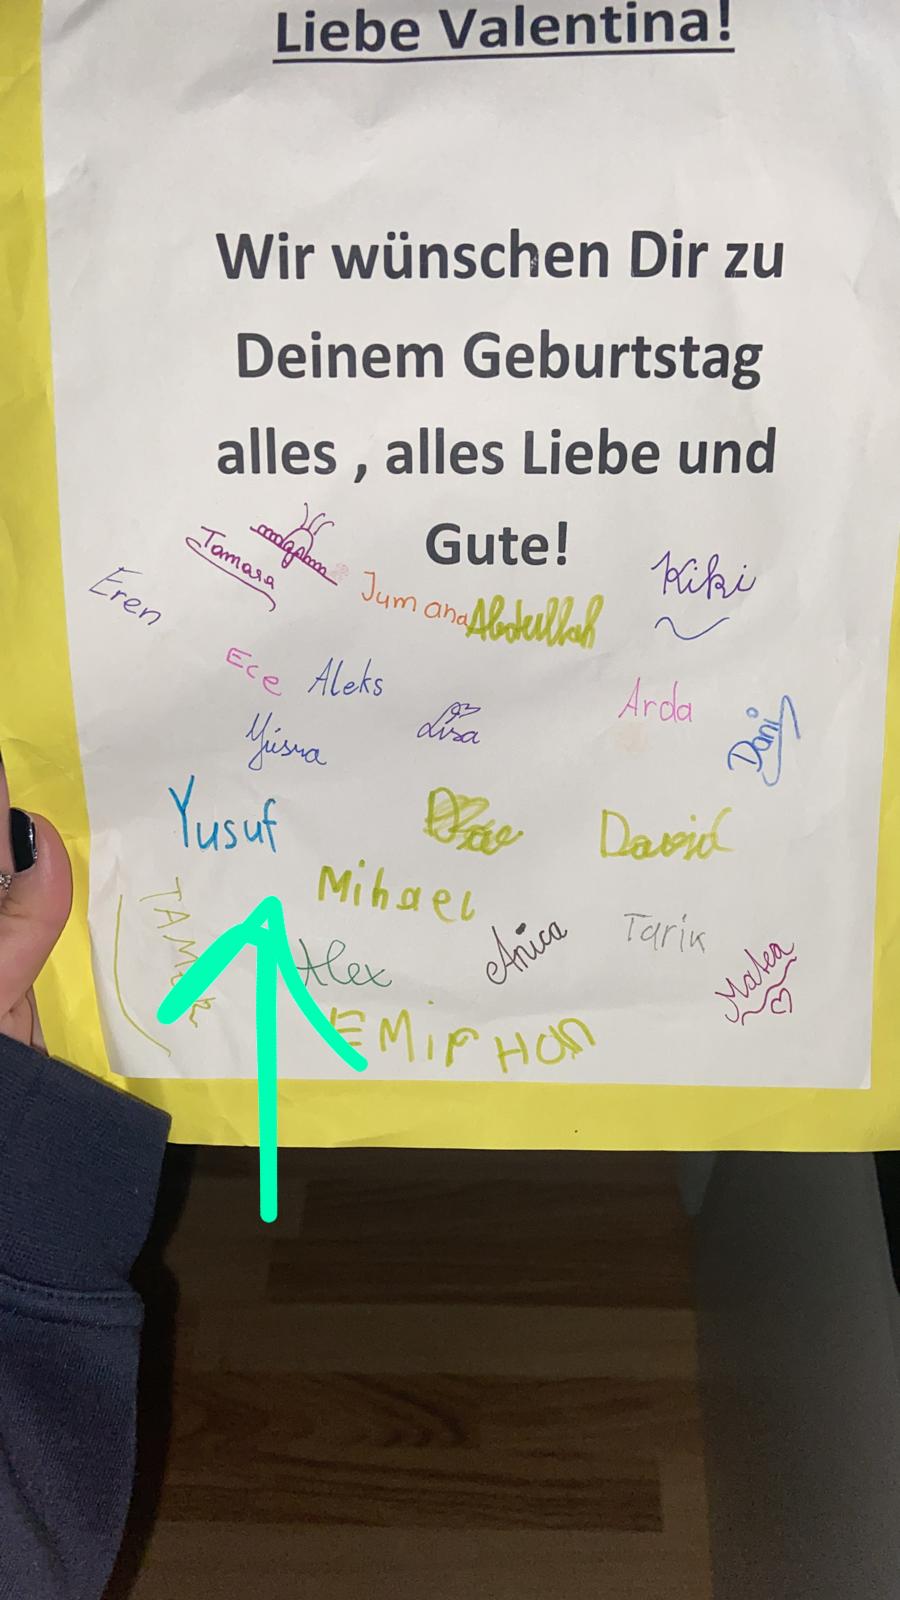 Liebe Valentina!
Wir wünschen Dir zu
Deinem Geburtstag
alles , alles Liebe und
Gute!
Tamara
Eren
Jumana
Abdullah
Kiki
Ece
Aleks
Arda
Yüsra
Lisa
Dani
Yusuf
David
Mihael
Alex
Anica
Tarik
Matea
EMiRHAN